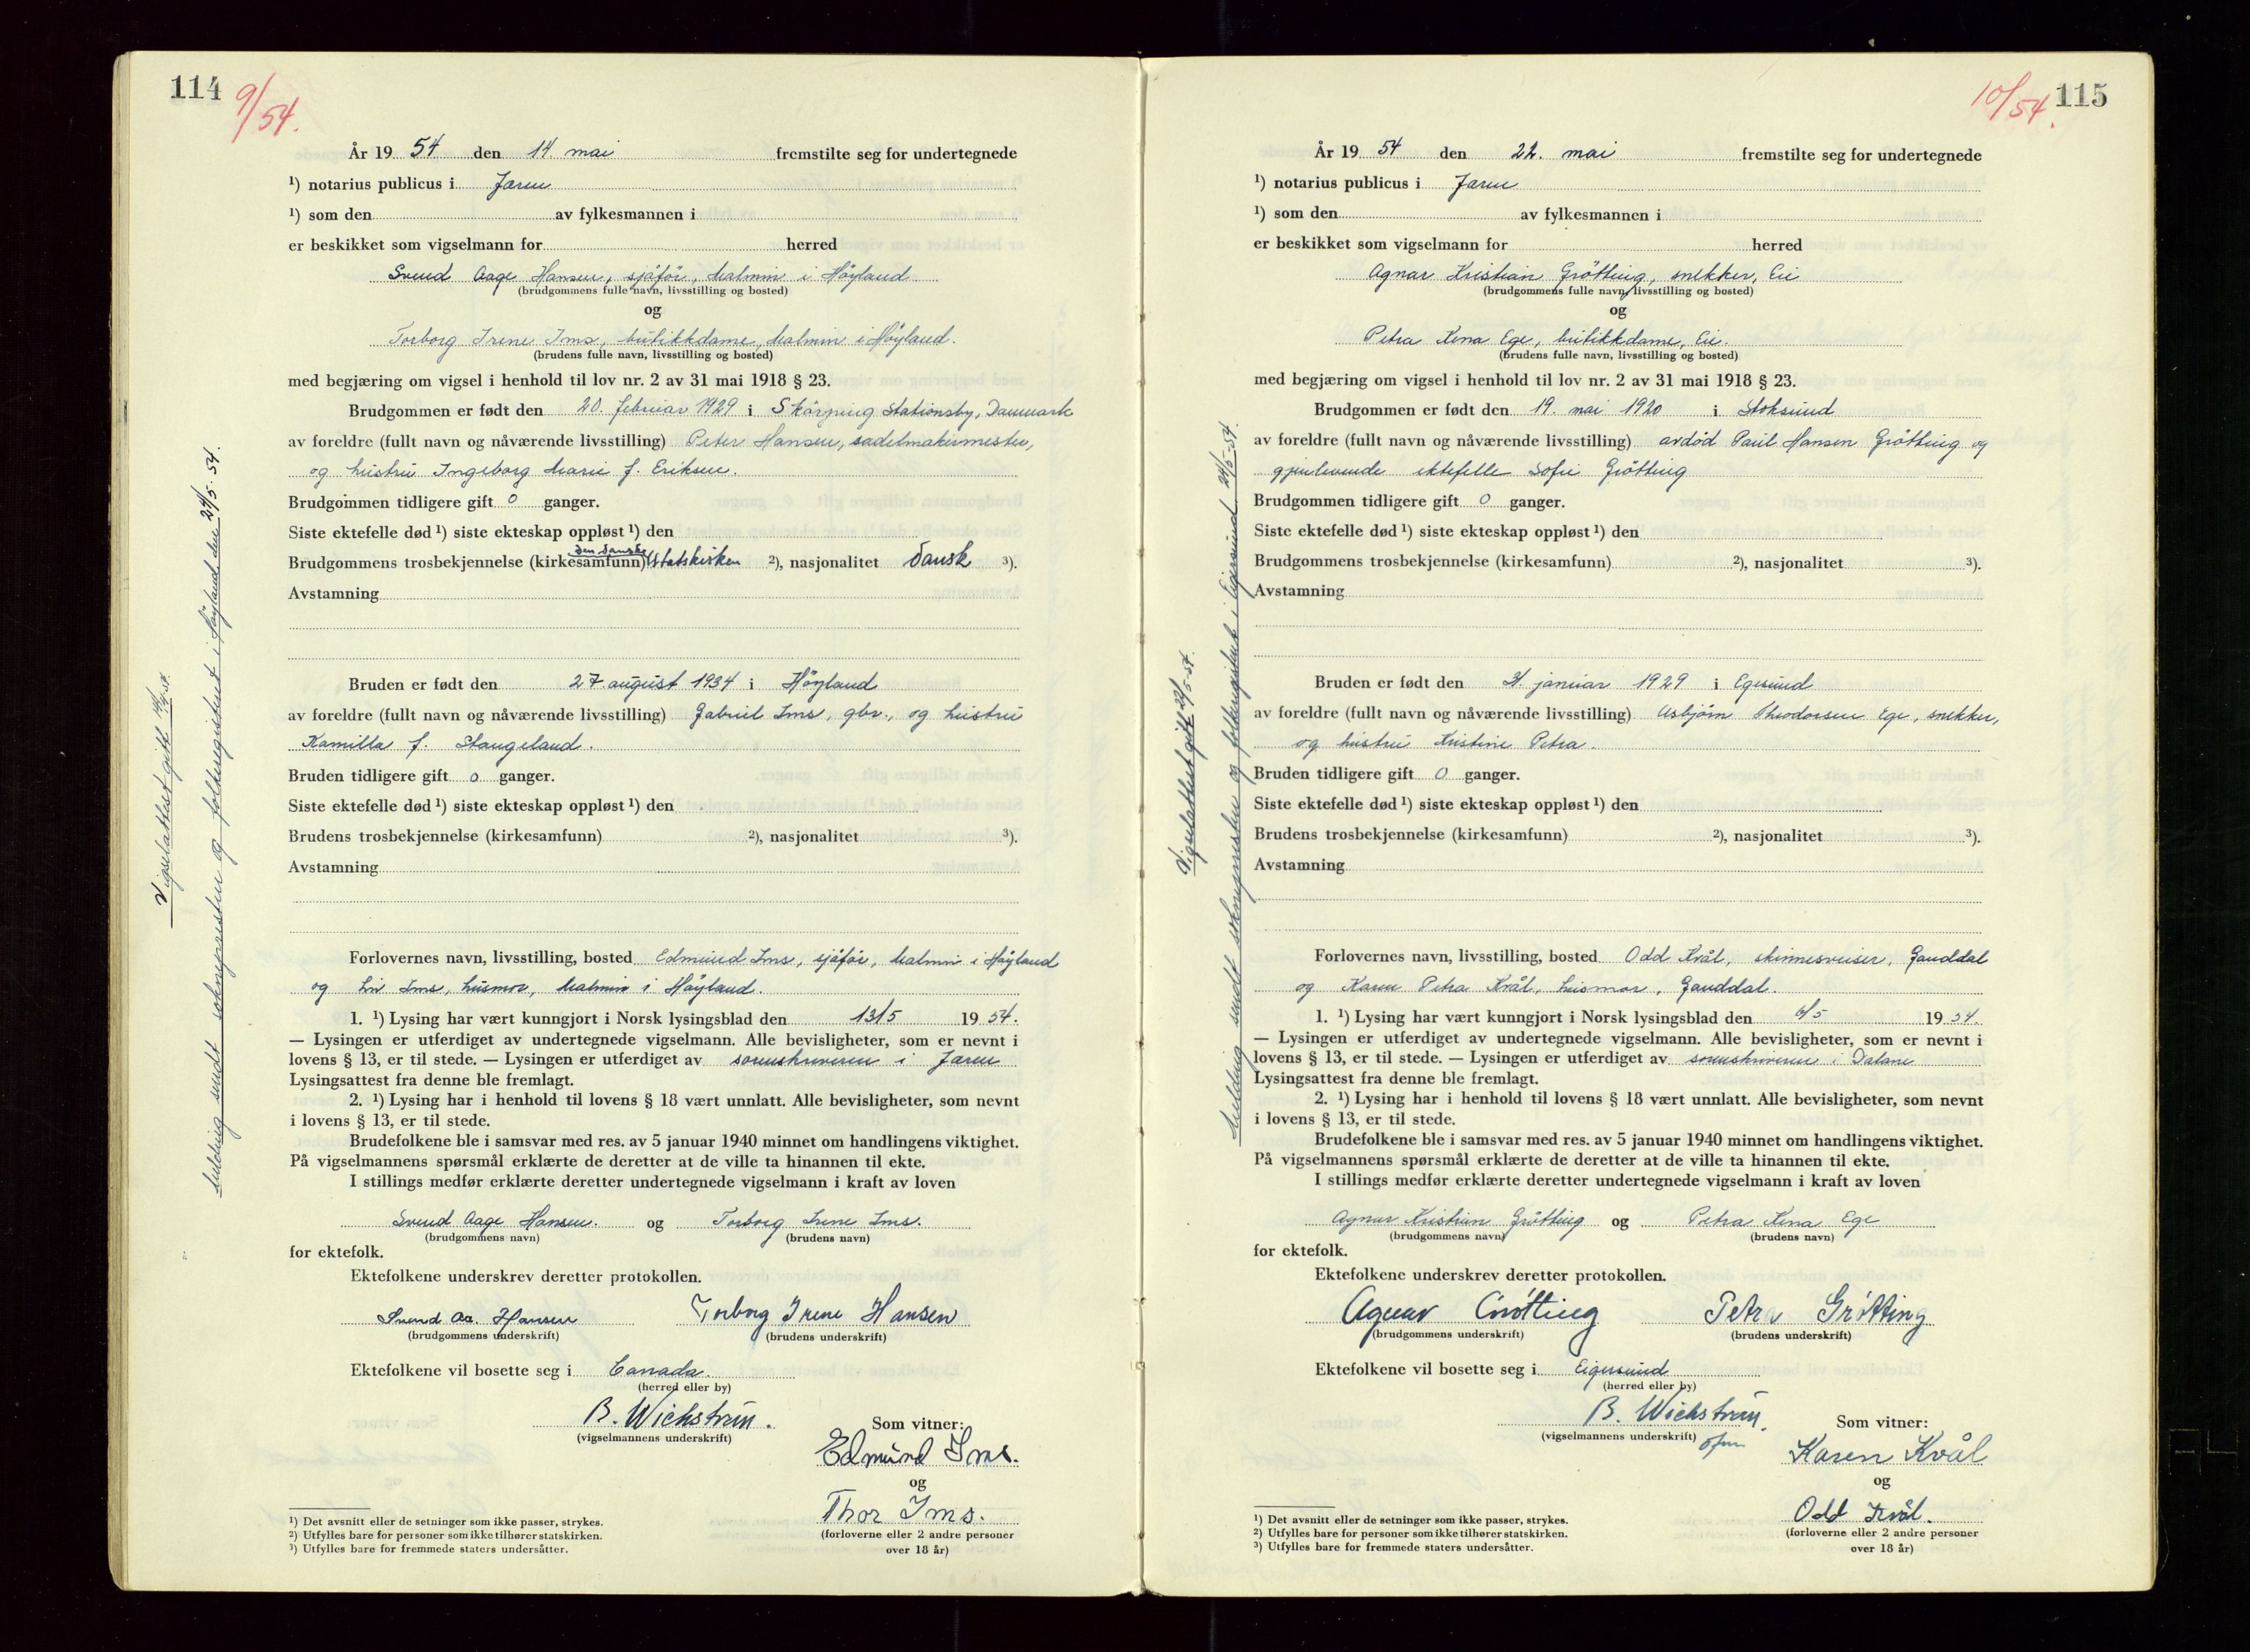 114
9/54.
År 19 54 den 14. mai fremstilte seg for undertegnede
¹) notarius publicus i Jæren
¹) som den av fylkesmannen i
er beskikket som vigselmann for herred
Svend Aage Hansen, sjåfør, Malmin i Höyland
(brudgommens fulle navn, livsstilling og bosted)
og
Torborg Irene Ims, butikkdame, Malmin i Höyland.
(brudens fulle navn, livsstilling og bosted)
med begjæring om vigsel i henhold til lov nr. 2 av 31 mai 1918 § 23.
Brudgommen er født den 20. februar 1929 i Skörping Stationsby, Danmark
av foreldre (fullt navn og nåværende livsstilling) Peter Hansen, sadelmakermester,
og hustru Ingeborg Marie f. Eriksen.
Brudgommen tidligere gift 0 ganger.
Siste ektefelle død ¹) siste ekteskap oppløst ¹) den
den danske
Brudgommens trosbekjennelse (kirkesamfunn) statskirken ²), nasjonalitet dansk ³).
Avstamning
Bruden er født den 27. august 1934 i Höyland
av foreldre (fullt navn og nåværende livsstilling) Gabriel Ims, gbr., og hustru
Kamilla f. Stangeland.
Bruden tidligere gift 0 ganger.
Siste ektefelle død ¹) siste ekteskap oppløst ¹) den
Brudens trosbekjennelse (kirkesamfunn) ²), nasjonalitet ³).
Avstamning
Forlovernes navn, livsstilling, bosted Edmund Ims, sjåfør, Malmin i Höyland
og Liv Ims, husmor, Malmin i Höyland.
1. ¹) Lysing har vært kunngjort i Norsk lysingsblad den 13/5 19 54.
— Lysingen er utferdiget av undertegnede vigselmann. Alle bevisligheter, som er nevnt i
lovens § 13, er til stede. — Lysingen er utferdiget av sorenskriveren i Jæren
Lysingsattest fra denne ble fremlagt.
2. ¹) Lysing har i henhold til lovens § 18 vært unnlatt. Alle bevisligheter, som nevnt
i lovens § 13, er til stede.
Brudefolkene ble i samsvar med res. av 5 januar 1940 minnet om handlingens viktighet.
På vigselmannens spørsmål erklærte de deretter at de ville ta hinannen til ekte.
I stillings medfør erklærte deretter undertegnede vigselmann i kraft av loven
Svend Aage Hansen. og Torborg Irene Ims.
(brudgommens navn) (brudens navn)
for ektefolk.
Ektefolkene underskrev deretter protokollen.
Svend Aa. Hansen Torborg Irene Hansen
(brudgommens underskrift) (brudens underskrift)
Ektefolkene vil bosette seg i Canada.
(herred eller by)
B. Wickstrøm.
(vigselmannens underskrift)
Som vitner:
Edmund Ims.
og
Thor Ims.
(forloverne eller 2 andre personer
over 18 år)
¹) Det avsnitt eller de setninger som ikke passer, strykes.
²) Utfylles bare for personer som ikke tilhører statskirken.
³) Utfylles bare for fremmede staters undersåtter.
Vigselattest gitt
Melding sendt soknepresten og folkeregisteret i Höyland den 24/5-54.
115
10/54.
År 19 54 den 22. mai fremstilte seg for undertegnede
¹) notarius publicus i Jæren
¹) som den av fylkesmannen i
er beskikket som vigselmann for herred
Agnar Kristian Gröttting, snekker, Eie
(brudgommens fulle navn, livsstilling og bosted)
og
Petra Kena Ege, butikkdame, Eie.
(brudens fulle navn, livsstilling og bosted)
med begjæring om vigsel i henhold til lov nr. 2 av 31 mai 1918 § 23.
Brudgommen er født den 19. mai 1920 i Stoksund
av foreldre (fullt navn og nåværende livsstilling) avdöd Paul Hansen Grötting og
gjenlevende ektefelle Sofie Grötting
Brudgommen tidligere gift 0 ganger.
Siste ektefelle død ¹) siste ekteskap oppløst ¹) den
Brudgommens trosbekjennelse (kirkesamfunn) ²), nasjonalitet ³).
Avstamning
Bruden er født den 31. januar 1929 i Egersund
av foreldre (fullt navn og nåværende livsstilling) Asbjörn Theodorsen Ege, snekker,
og hustru Kristine Petra.
Bruden tidligere gift 0 ganger.
Siste ektefelle død ¹) siste ekteskap oppløst ¹) den
Brudens trosbekjennelse (kirkesamfunn) ²), nasjonalitet ³).
Avstamning
Forlovernes navn, livsstilling, bosted Odd Kvål, skinnesveiser, Ganddal
og Karen Petra Kvål, husmor, Ganddal.
1. ¹) Lysing har vært kunngjort i Norsk lysingsblad den 6/5 19 54.
— Lysingen er utferdiget av undertegnede vigselmann. Alle bevisligheter, som er nevnt i
lovens § 13, er til stede. — Lysingen er utferdiget av sorenskriveren i Dalane
Lysingsattest fra denne ble fremlagt.
2. ¹) Lysing har i henhold til lovens § 18 vært unnlatt. Alle bevisligheter, som nevnt
i lovens § 13, er til stede.
Brudefolkene ble i samsvar med res. av 5 januar 1940 minnet om handlingens viktighet.
På vigselmannens spørsmål erklærte de deretter at de ville ta hinannen til ekte.
I stillings medfør erklærte deretter undertegnede vigselmann i kraft av loven
Agnar Kristian Grötting og Petra Kena Ege
(brudgommens navn) (brudens navn)
for ektefolk.
Ektefolkene underskrev deretter protokollen.
Agnar Grøtting Petra Grøtting
(brudgommens underskrift) (brudens underskrift)
Ektefolkene vil bosette seg i Eigersund
(herred eller by)
B. Wickstrøm.
(vigselmannens underskrift)
Som vitner:
Karen Kvål
og
Odd Kvål.
(forloverne eller 2 andre personer
over 18 år)
¹) Det avsnitt eller de setninger som ikke passer, strykes.
²) Utfylles bare for personer som ikke tilhører statskirken.
³) Utfylles bare for fremmede staters undersåtter.
Vigselattest gitt
Melding sendt soknepresten og folkeregisteret i Eigersund 24/5-54.